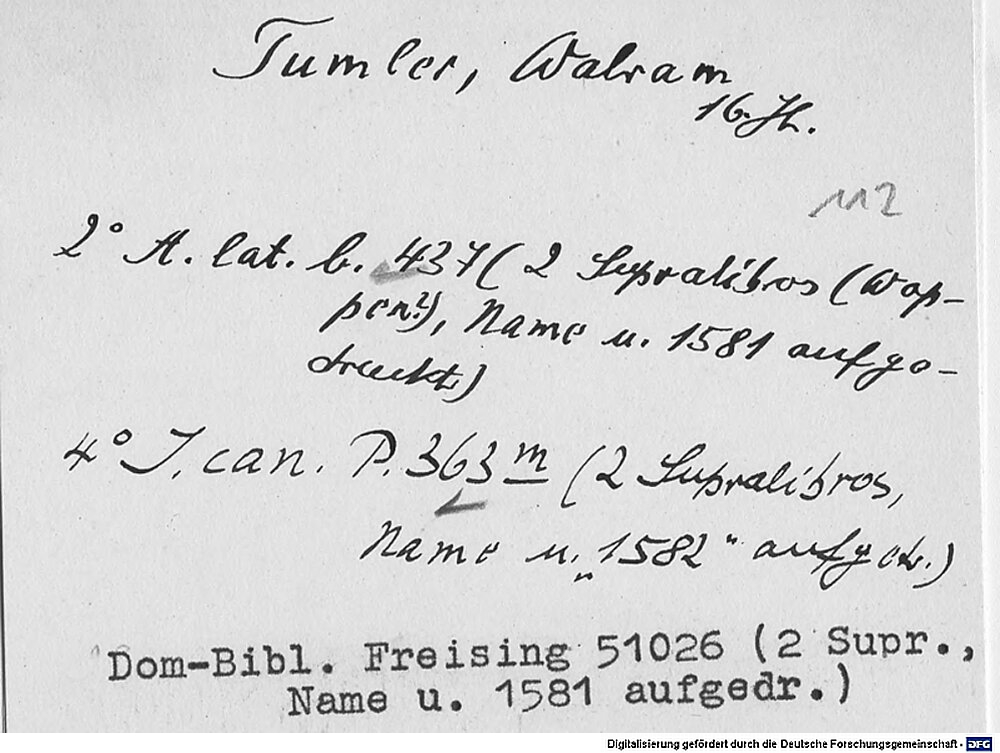 Tumler, Walram
16. Jh.
112
2° A. lat. b. 437 (2 Supralibros (Wap-
pen?), Name u. 1581 aufge-
druckt)
4° J. can. P. 363 m (2 Supralibros,
Name u. „1582“ aufgedr.)
Dom-Bibl. Freising 51026 (2 Supr.,
Name u. 1581 aufgedr.)
Digitalisierung gefördert durch die Deutsche Forschungsgemeinschaft - DFG